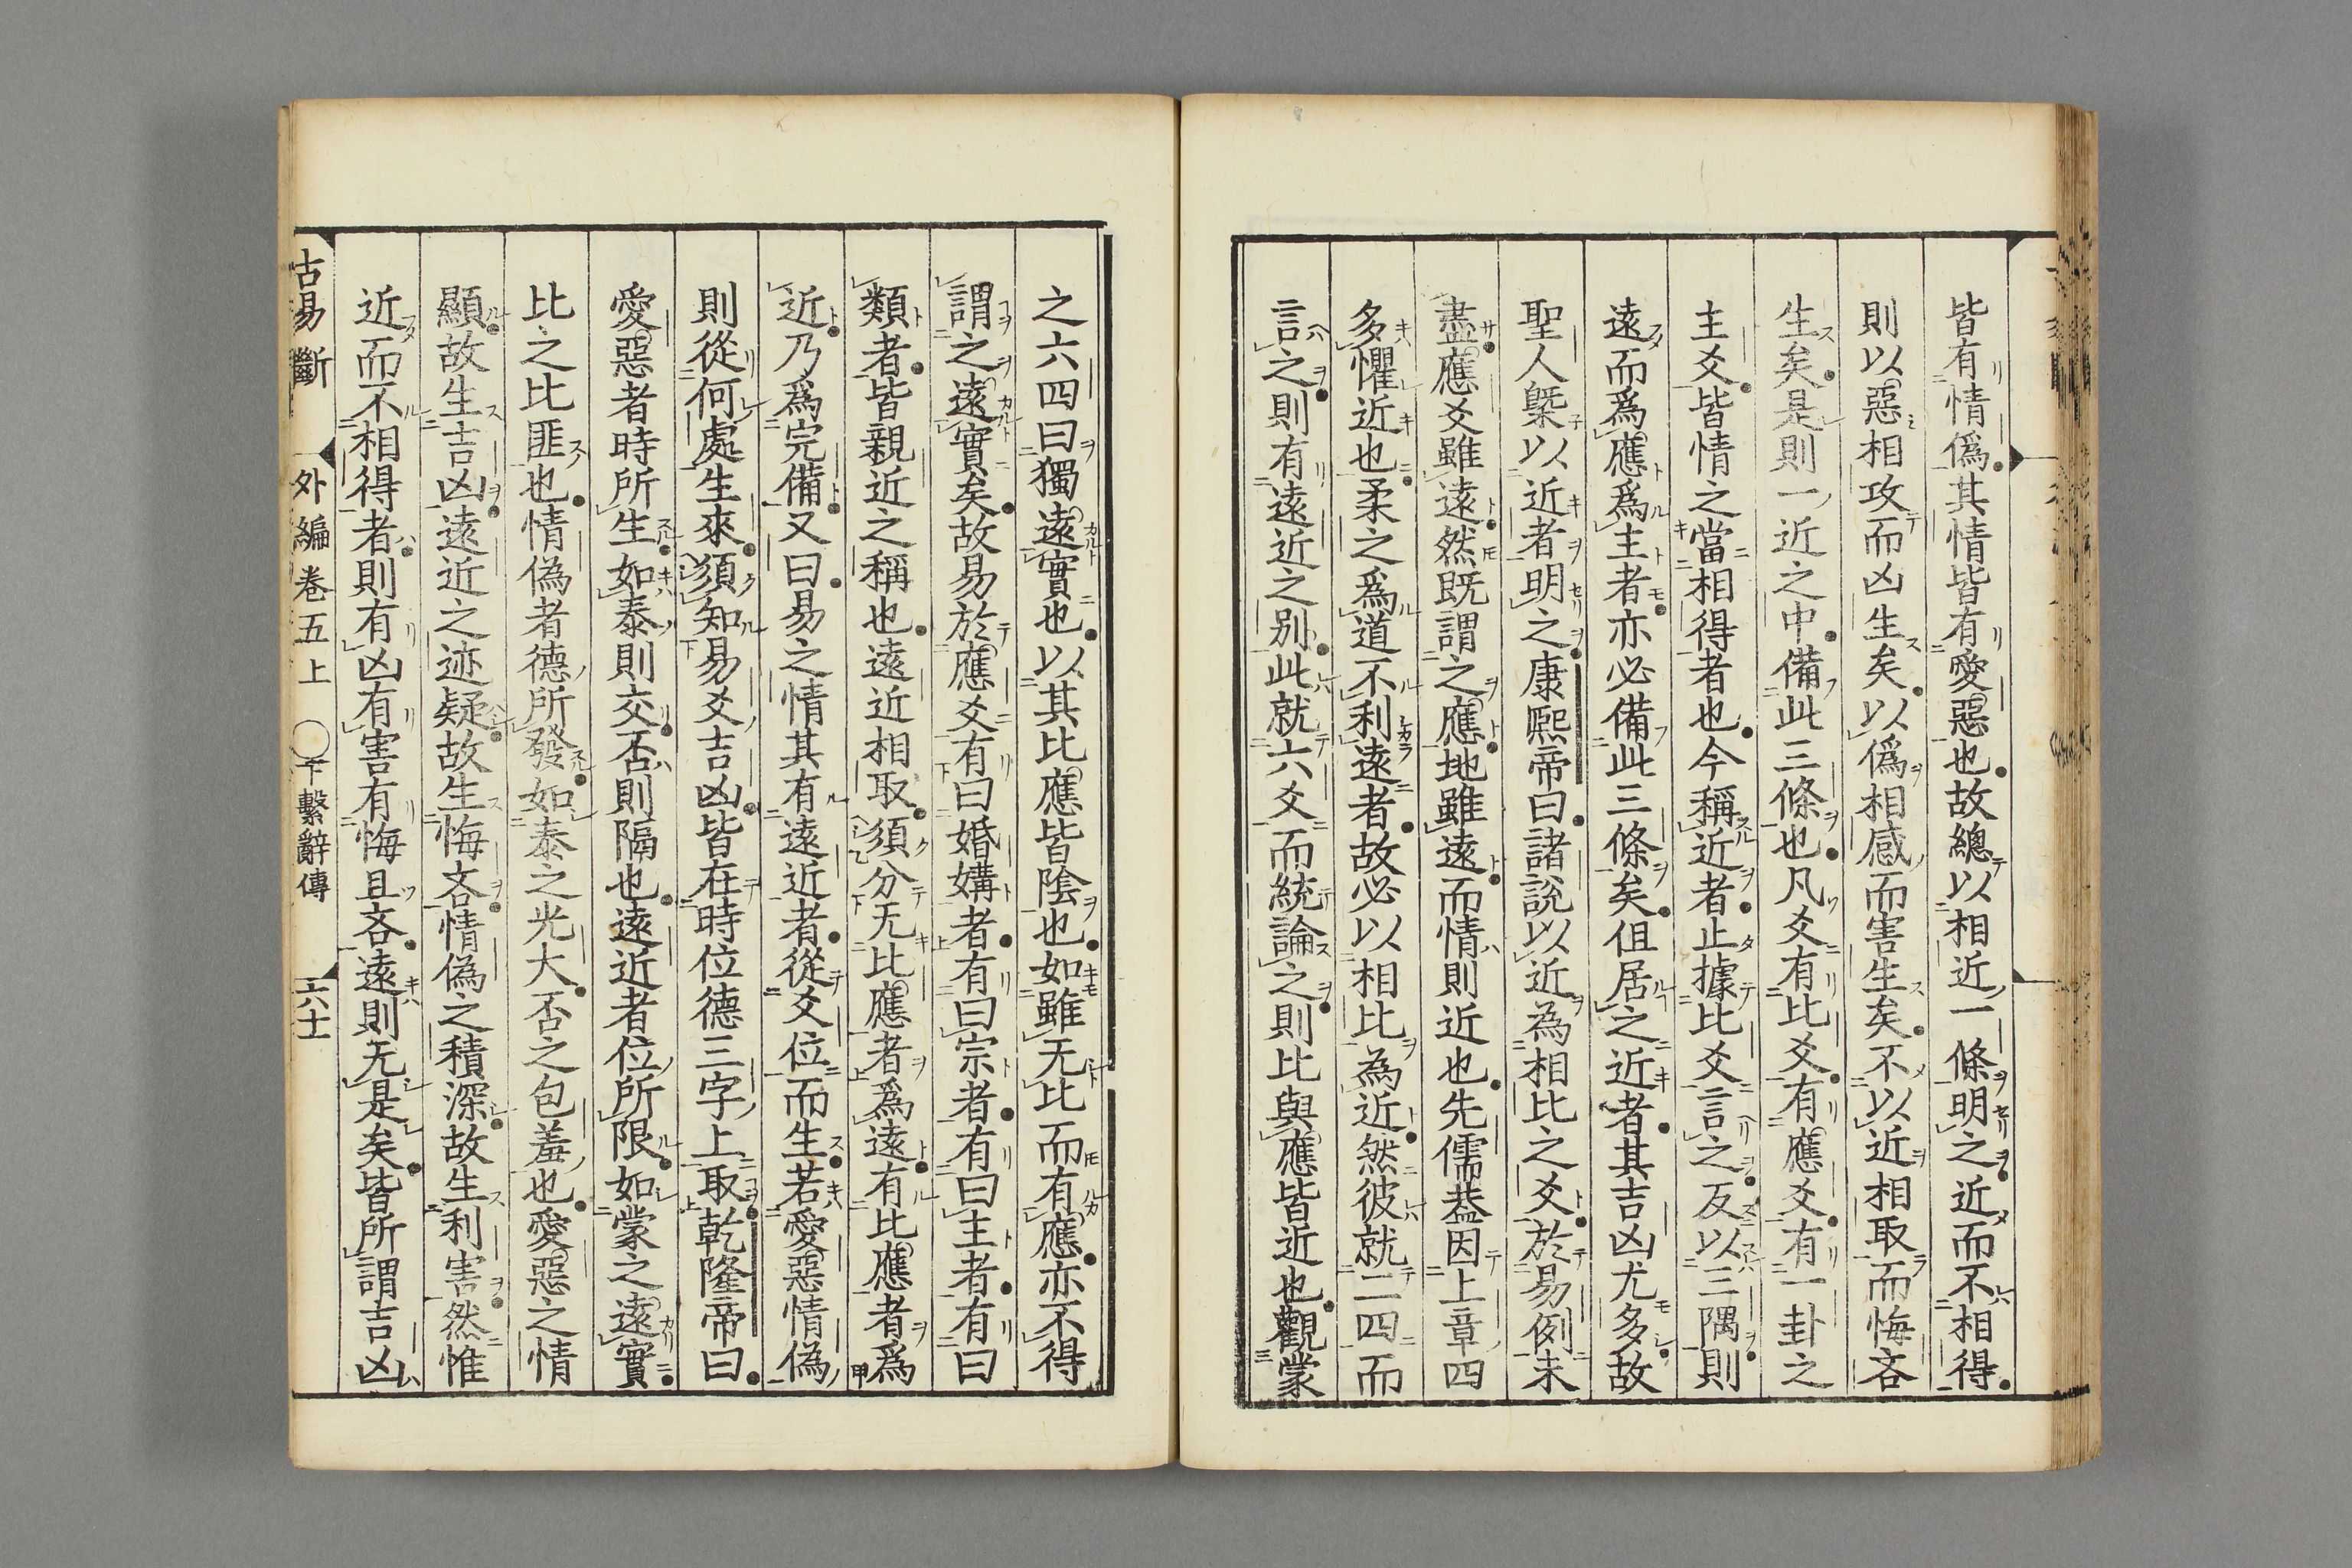 皆有情僞其情皆有愛惡也故總以相近一條明之近而不相得
則以惡相攻而凶生矣以僞相感而害生矣不以近相取而悔吝
生矣是則一近之中備此三條也凡爻有比爻有應爻有一卦之
主爻皆情之當相得者也今稱近者止據比爻言之反以三隅則
遠而爲應爲主者亦必備此三條矣但居之近者其吉凶尤多故
聖人槩以近者明之康熙帝曰諸說以近為相比之爻於易例未
盡應爻雖遠然既謂之應地雖遠而情則近也先儒葢因上章四
多懼近也柔之爲道不利遠者故必以相比為近然彼就二四而
言之則有遠近之别此就六爻而統論之則比與應皆近也觀蒙
之六四曰獨遠實也以其比應皆陰也如雖无比而有應亦不得
謂之遠實矣故易於應爻有曰婚媾者有曰宗者有曰主者有曰
類者皆親近之稱也遠近相取須分无比應者爲遠有比應者爲
近乃爲完備又曰易之情其有遠近者從爻位而生若愛惡情偽
則從何處生來須知易爻吉凶皆在時位德三字上取乾隆帝曰
愛惡者時所生如泰則交否則隔也遠近者位所限如蒙之遠實
比之比匪也情偽者德所發如泰之光大否之包羞也愛惡之情
顯故生吉凶遠近之迹疑故生悔吝情偽之積深故生利害然惟
近而不相得者則有凶有害有悔且吝遠則无是矣皆所謂吉凶
古易斷 外編卷五上 ○下繫辭傳 六十